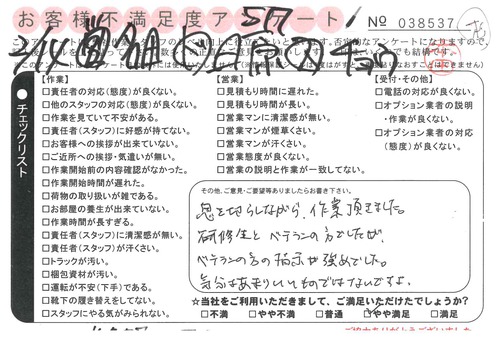 お客様不満足度アンケート
No 038537
チェックリスト
【作業】
□責任者の対応(態度)が良くない。
□他のスタッフの対応(態度)が良くない。
□作業を見ていて不安がある。
□責任者(スタッフ)に好感が持てない。
□お客様への挨拶が出来ていない。
□ご近所への挨拶・気遣いが無い。
□作業開始前の内容確認がなかった。
□作業開始時間が遅れた。
□荷物の取り扱いが雑である。
□お部屋の養生が出来ていない。
□作業時間が長すぎる。
□責任者(スタッフ)に清潔感が無い。
□責任者(スタッフ)が汗くさい。
□トラックが汚い。
□梱包資材が汚い。
□運転が不安(下手)である。
□靴下の履き替えをしてない。
□スタッフにやる気がみられない。
【営業】
□見積もり時間に遅れた。
□見積もり時間が長い。
□営業マンに清潔感が無い。
□営業マンが煙草くさい。
□営業マンが汗くさい。
□営業態度が良くない。
□営業の説明と作業が一致してない。
【受付・その他】
□電話の対応が良くない。
□オプション業者の説明
・作業が良くない。
□オプション業者の対応
(態度)が良くない。
その他、ご意見・ご要望等ありましたらお書き下さい。
息を切らしながら、作業頂きました。
研修生とベテランの方でしたが、
ベテランの方の指示が強めでした。
気分はあまりいいものではないですよ。
☆当社をご利用いただきまして、ご満足いただけたでしょうか?
□不満 □やや不満 □普通 □やや満足 □満足
ご協力ありがとうございました